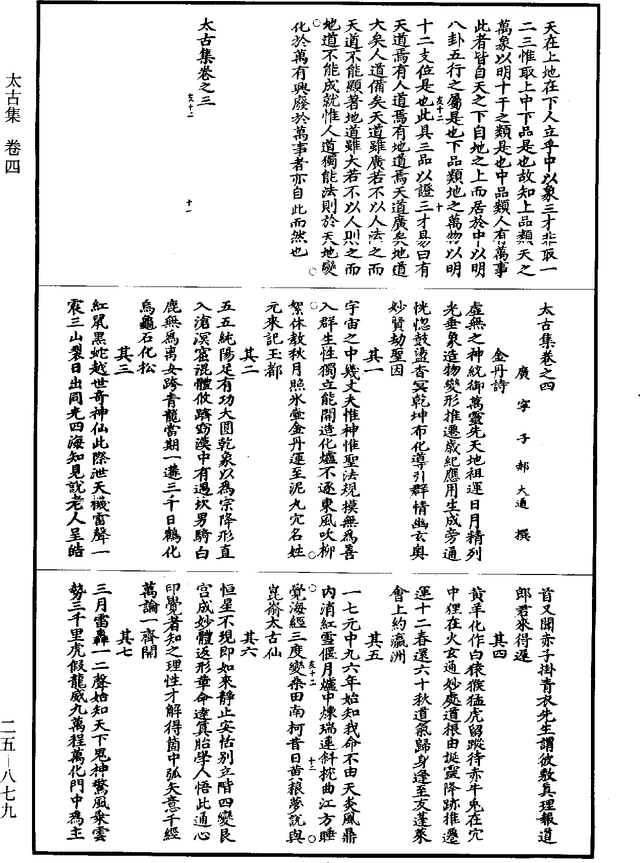 太古集　卷四
二五—八七九
天在上地在下人立乎中以象三才非取一
二三惟取上中下品是也故知上品類天之
萬象以明十干之類是也中品類人有萬事
此者皆自天之下自地之上而居於中以明
八卦五行之屬是也下品類地之萬物以明
十二支位是也此具三品以證三才易曰有
天道焉有人道焉有地道焉天道廣矣地道
大矣人道備矣天道雖廣若不以人法之而
天道不能顯著地道雖大若不以人則之而
地道不能成就惟人道獨能法則於天地變
化於萬有興廢於萬事者亦自此而然也
太古集卷之三
太古集卷之四
廣寧子郝大通撰
金丹詩
虛無之神統御萬靈先天地祖運日月精列
光垂象造物變形推遷歲紀應用生成旁通
恍惚鼓盪杳冥乾坤布化導引群情幽玄奧
妙賢劫聖因
其一
宇宙之中幾丈夫惟神惟聖法規模無為善
入群生性獨立能開造化爐不逐東風吹柳
絮休教秋月照氷壺金丹運至泥丸穴名姓
元來記玉都
其二
五五純陽足有功大圓乾象以為宗降形直
入滄溟窟混體攸躋窈漠中有遇坎男騎白
鹿無為离女跨青龍當期一遘三千日鶴化
烏龜石化松
其三
紅鼠黑蛇越世奇神仙此際泄天機雷聲一
震三山裂日出同光四海知見說老人呈皓
首又聞赤子掛青衣先生謂彼敷真理報道
郎君來得遲
其四
黄羊化作白猿猴猛虎留蹤待赤牛兎在穴
中狸在火玄通妙處道根由挺靈降跡推遷
運十二春還六十秋道氣歸身逢至友蓬萊
會上約瀛洲
其五
一七元中九六年始知我命不由天炎風鼎
内消紅雪偃月爐中煉瑞蓮斜枕曲江方睡
覺海經三度變桑田南柯昔日黄粮夢說與
崑崙太古仙
其六
恒星不現即如來靜止安恬别立階四變艮
宫成妙體返形華命達真胎學人悟此通心
印覺者知之理性才解得箇中弧矢意千經
萬論一齊開
其七
三月雷轟一二聲始知天下鬼神驚風乘雲
勢三千里虎假龍威九萬程萬化門中為主